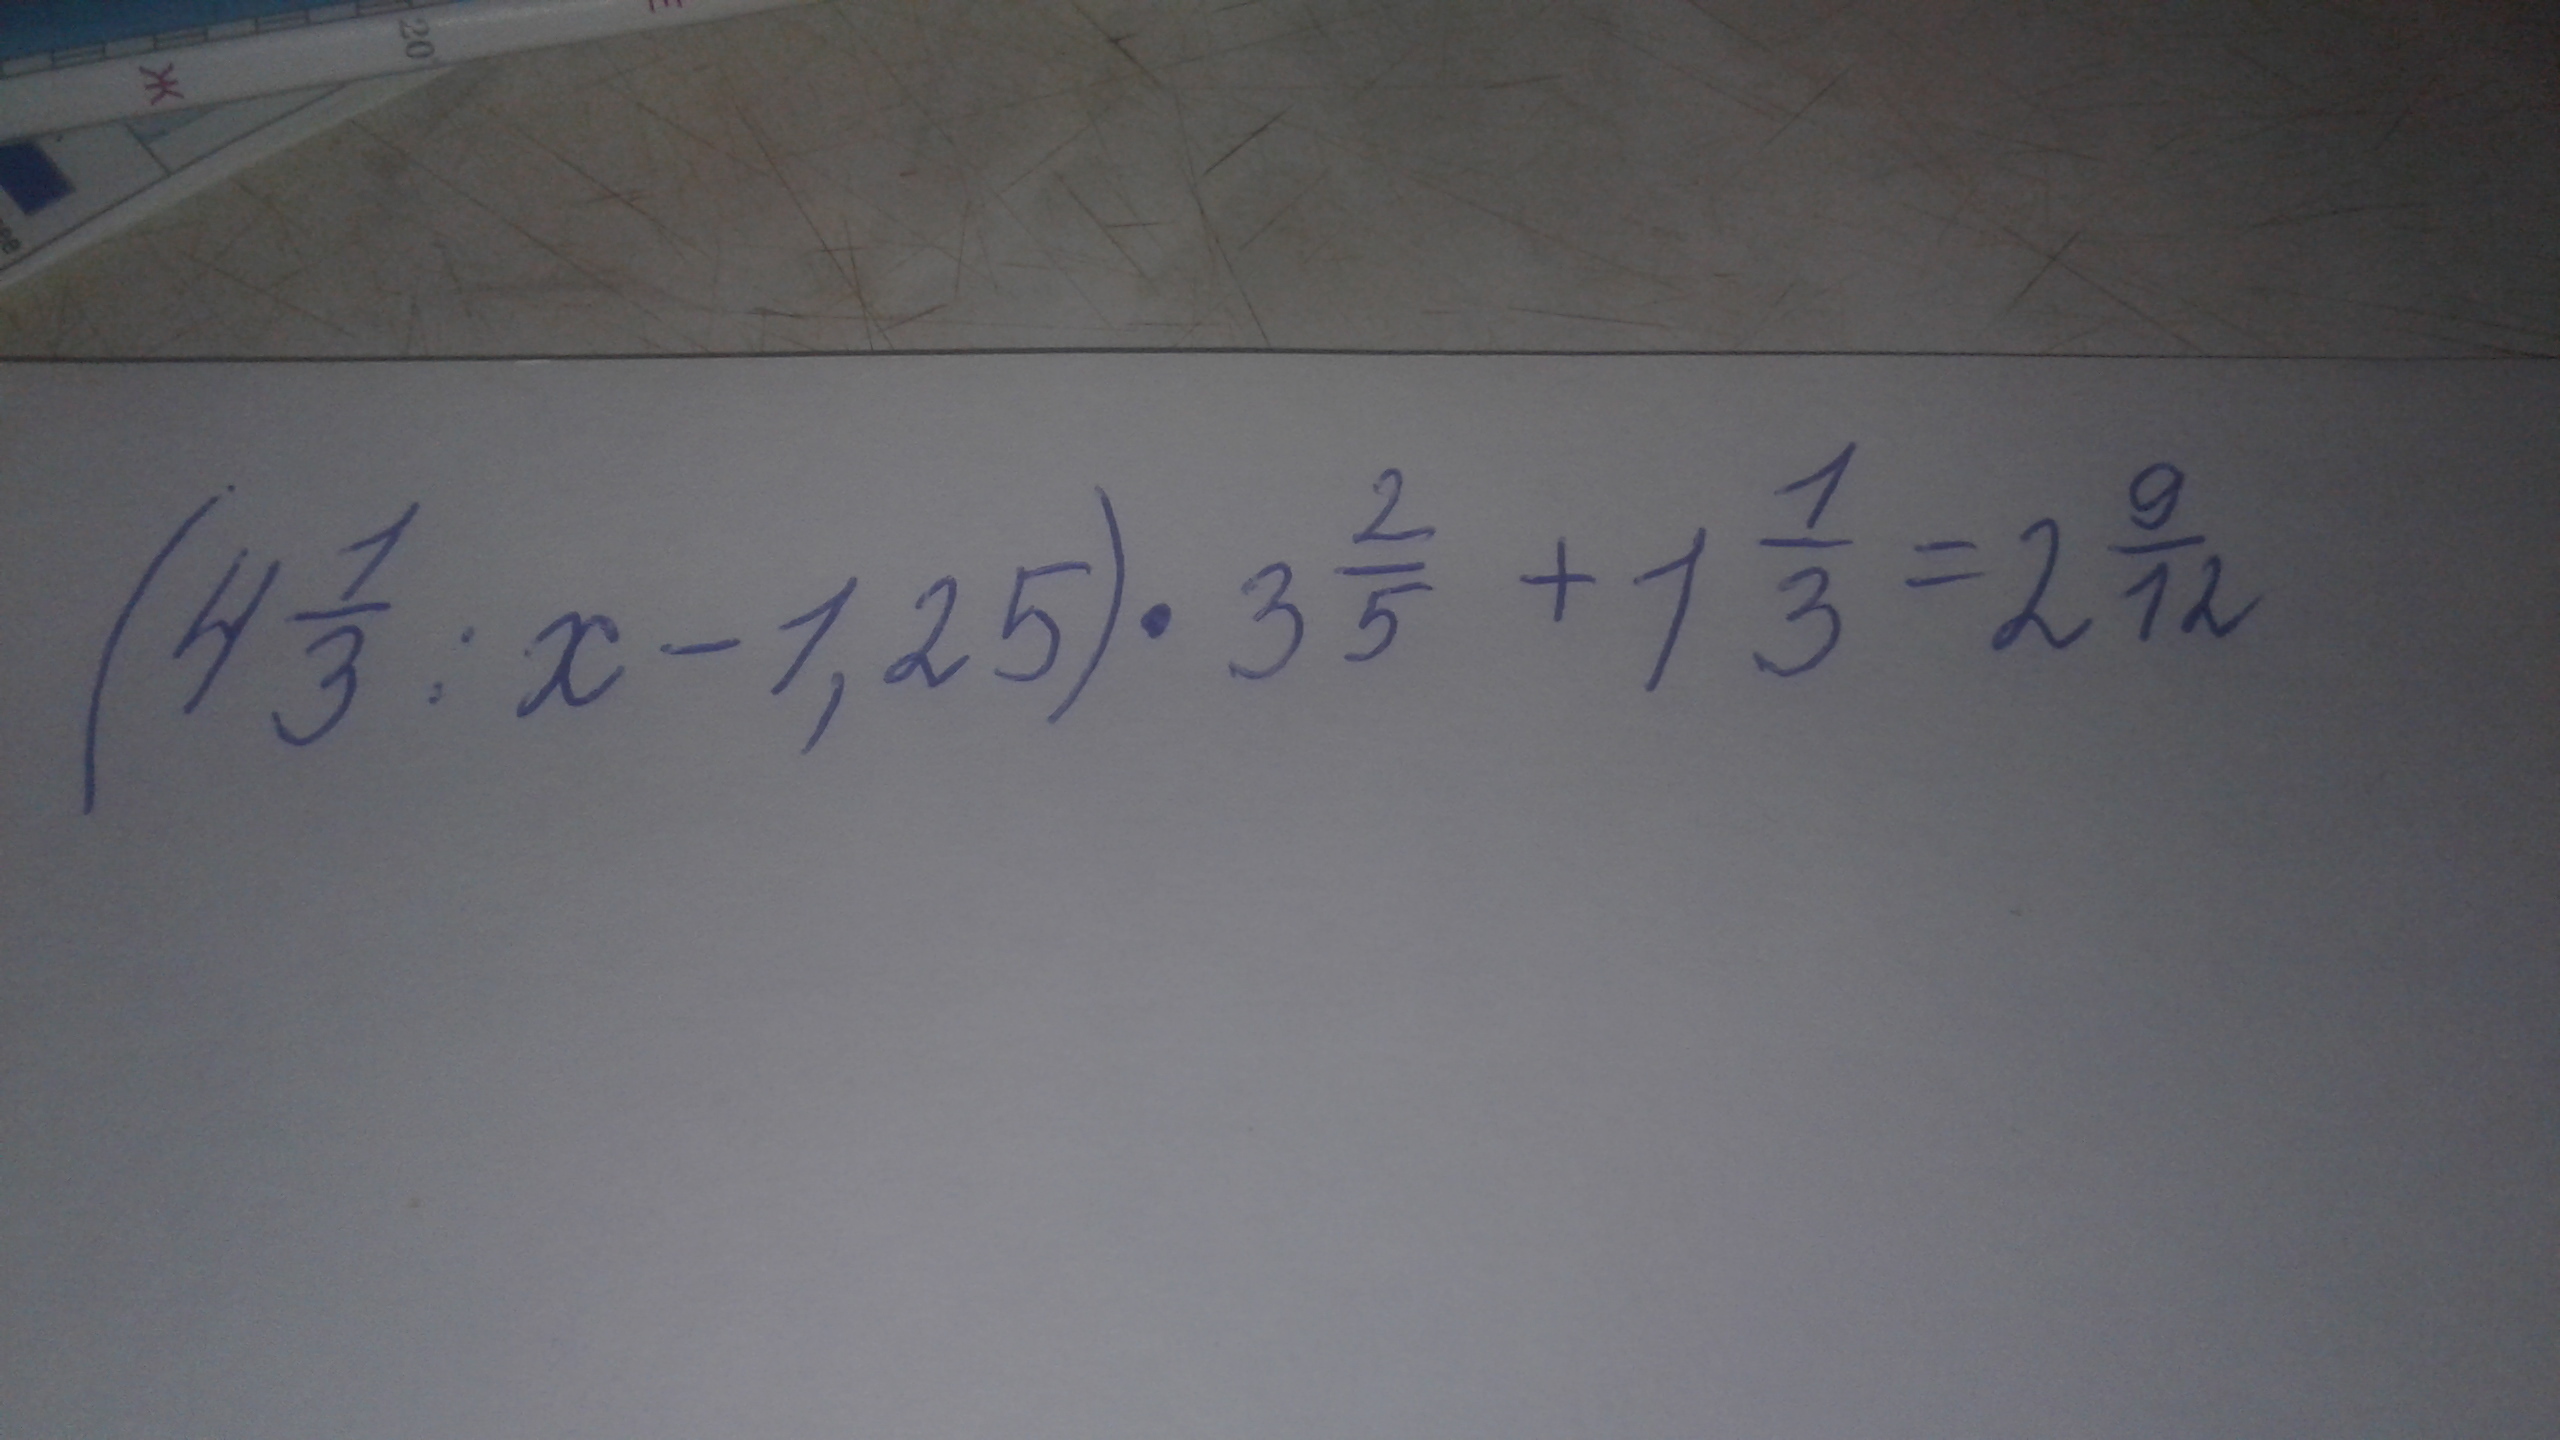 Ж 20
(4 1/3 : x - 1,25) · 3 2/5 + 1 1/3 = 2 9/12